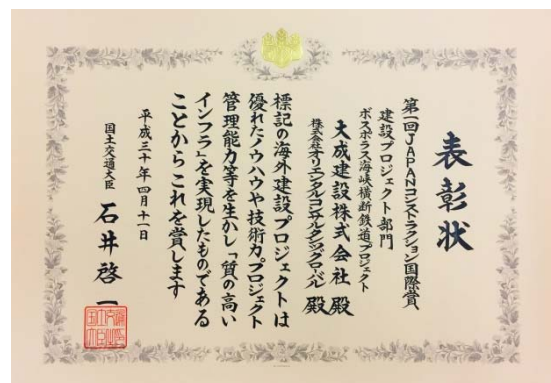 表彰状
第一回JAPANコンストラクション国際賞
建設プロジェクト部門
ボスポラス海峡横断鉄道プロジェクト
大成建設株式会社 殿
株式会社オリエンタルコンサルタンツグローバル 殿
標記の海外建設プロジェクトは
優れたノウハウや技術力、プロジェクト
管理能力等を生かし「質の高い
インフラ」を実現したものである
ことからこれを賞します
平成三十年四月十一日
国土交通大臣 石井啓一